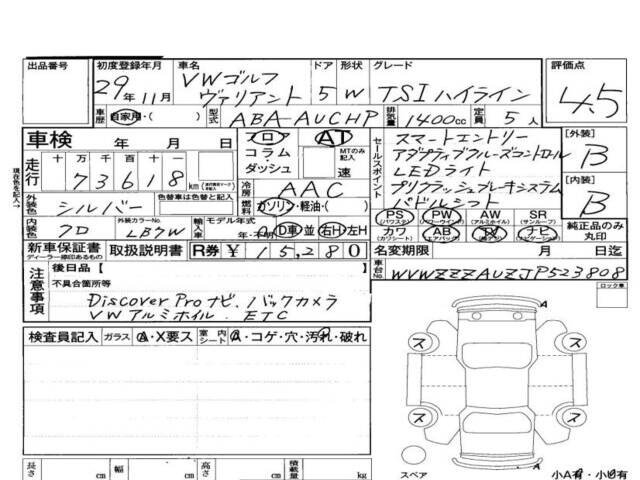 出品番号
初度登録年月 29年11月
車名 VWゴルフ ヴァリアント
ドア 5 形状 W
グレード TSIハイライン
評価点 4.5
車歴 自家用・( )
型式 ABA-AUCHP
排気量 1400cc
定員 5人
車検 年 月 日
フロ AT
コラム
ダッシュ
MTのみ記入
速
走行 十万千百十 73618 km
冷房 AAC
燃料 ガソリン・軽油・( )
外装色 シルバー
色替車は色替と記入
現在色を記入→
内装色 クロ
外装カラーNo. LB7W
輸入車 モデル年式 年・不明 D車 並 右H 左H
セールスポイント
スマートエントリー
アダプティブクルーズコントロール
LEDライト
プリクラッシュブレーキシステム
パドルシフト
[外装] B
[内装] B
PS PW AW SR
(パワステ) (パワーウインド) (アルミホイル) (サンルーフ)
カワ AB TV ナビ
(カワシート) (エアバック) (ナビゲーション)
純正品のみ丸印
新車保証書
ディーラー捺印あるもの
取扱説明書
R券 ¥ 15,280
名変期限 月 日迄
車台No. WVWZZZAUZJP523808
注意事項
後日品[ ]
不具合箇所等
Discover Proナビ、バックカメラ
VWアルミホイル、ETC
ロック車
検査員記入 ガラス A・X要ス 室内シート A・コゲ・穴・汚れ・破れ
A
ス ス
ス ス
スペア
A
長さ cm 幅 cm 高さ cm 積載量 kg
小A有・小B有